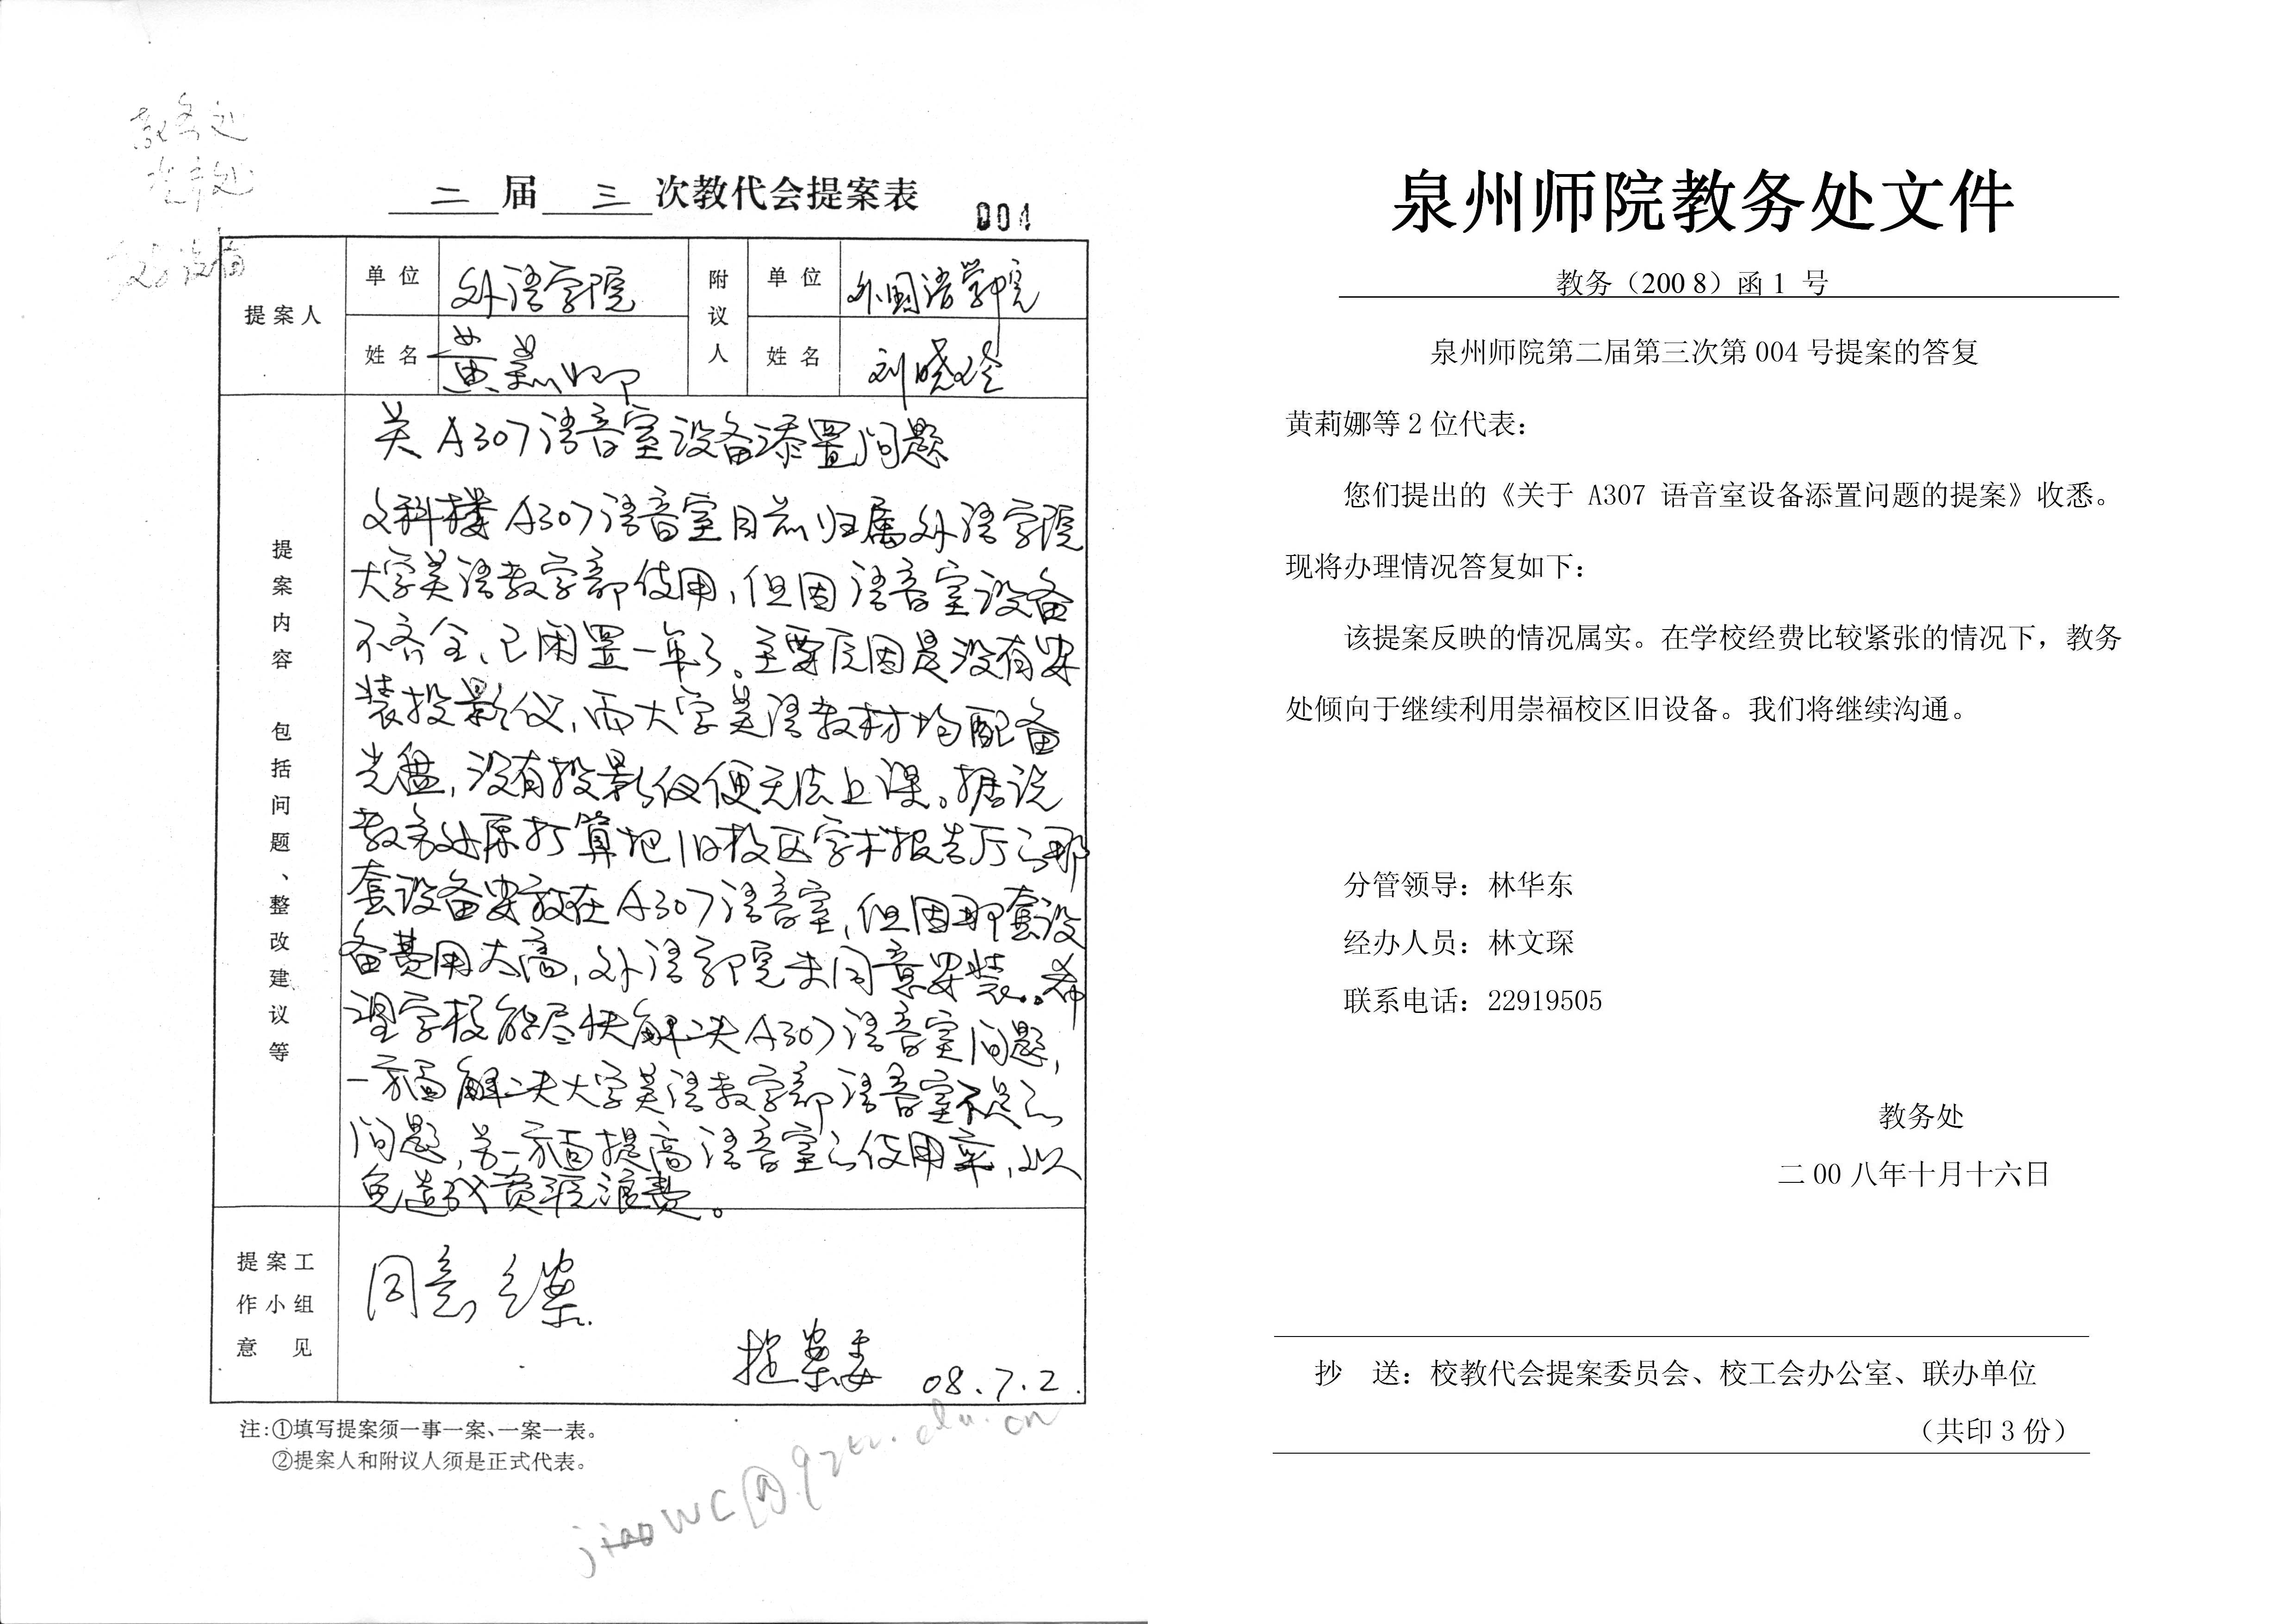 教务处
二 届 三 次教代会提案表
004
提案人
单位
外语学院
附议人
单位
外国语学院
姓名
黄莉娜
姓名
刘晓
提案内容 包括问题、整改建议等
关A307语音室设备添置问题
文科楼A307语音室目前归属外语学院
大学英语教学部使用,但因语音室设备
不齐全、已闲置一年了。主要原因是没有安
装投影仪,而大学英语教材均配备
光盘,没有投影仪便无法上课。据说
教务处原打算把旧校区学术报告厅的那
套设备安放在A307语音室,但因那套设
备费用太高,外语学院未同意安装。希
望学校能尽快解决A307语音室问题,
一方面解决大学英语教学部语音室不足的
问题,另一方面提高语音室的使用率,以
免造成资源浪费。
提案工作小组意见
同意立案.
提案委 08.7.2.
注:①填写提案须一事一案、一案一表。
②提案人和附议人须是正式代表。
jiaowc@qztc.edu.cn
泉州师院教务处文件
教务（2008）函1 号
泉州师院第二届第三次第 004 号提案的答复
黄莉娜等 2 位代表：
您们提出的《关于 A307 语音室设备添置问题的提案》收悉。
现将办理情况答复如下：
该提案反映的情况属实。在学校经费比较紧张的情况下，教务
处倾向于继续利用崇福校区旧设备。我们将继续沟通。
分管领导：林华东
经办人员：林文琛
联系电话：22919505
教务处
二 00 八年十月十六日
抄 送：校教代会提案委员会、校工会办公室、联办单位
（共印 3 份）